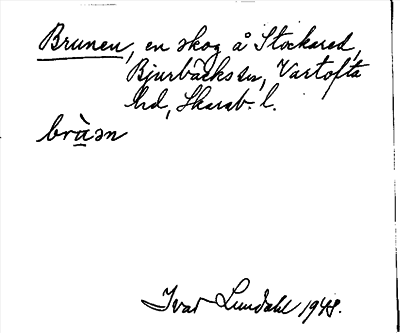 Brunen, en skog å Stockared,
Bjurbäcks sn, Vartofta
hd, Skarab. l.
bràən
Ivar Lundahl 1948.